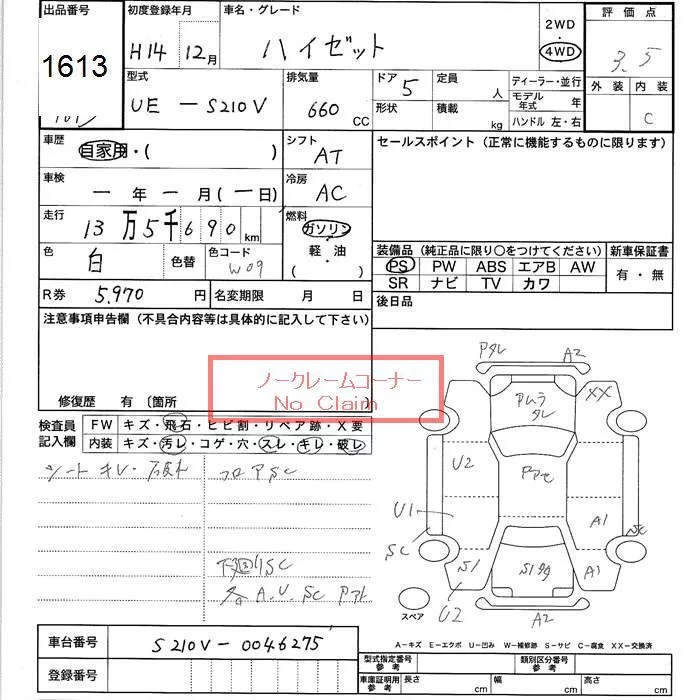 出品番号 初度登録年月 車名・グレード 2WD ・ 4WD 評価点
1613 H14 12月 ハイゼット 3.5
型式 排気量 ドア 定員 人 ディーラー・並行 外装 内装
UE-S210V 660 CC 5 形状 積載 kg モデル年式 年 C
ハンドル 左・右
車歴 自家用・( ) シフト AT セールスポイント (正常に機能するものに限ります)
車検 一年一月(一日) 冷房 AC
走行 13万5千690km 燃料 ガソリン
色 白 色替 色コード W09 軽・油 ( )
装備品 (純正品に限り○をつけてください) 新車保証書
PS PW ABS エアB AW 有・無
SR ナビ TV カワ
R券 5,970 円 名変期限 月 日 後日品
注意事項申告欄 (不具合内容等は具体的に記入して下さい)
ノークレームコーナー
No Claim
修復歴 有 〔箇所 〕
検査員記入欄 FW キズ・飛石・ヒビ割・リペア跡・X要
内装 キズ・汚レ・コゲ・穴・スレ・キレ・破レ
シートキレ・破れ フロアSC
下回りSC
各A.U.SC
Pタレ A2
Pムラ タレ XX
U2
U1 A1
SC SC
S1 A1
U2 A2
スペア
A-キズ E-エクボ U-凹み W-補修跡 S-サビ C-腐食 XX-交換済
車台番号 S210V-0046275
登録番号
型式指定番号 参考 類別区分番号 参考
車庫証明用 参考 長さ cm 幅 cm 高さ cm